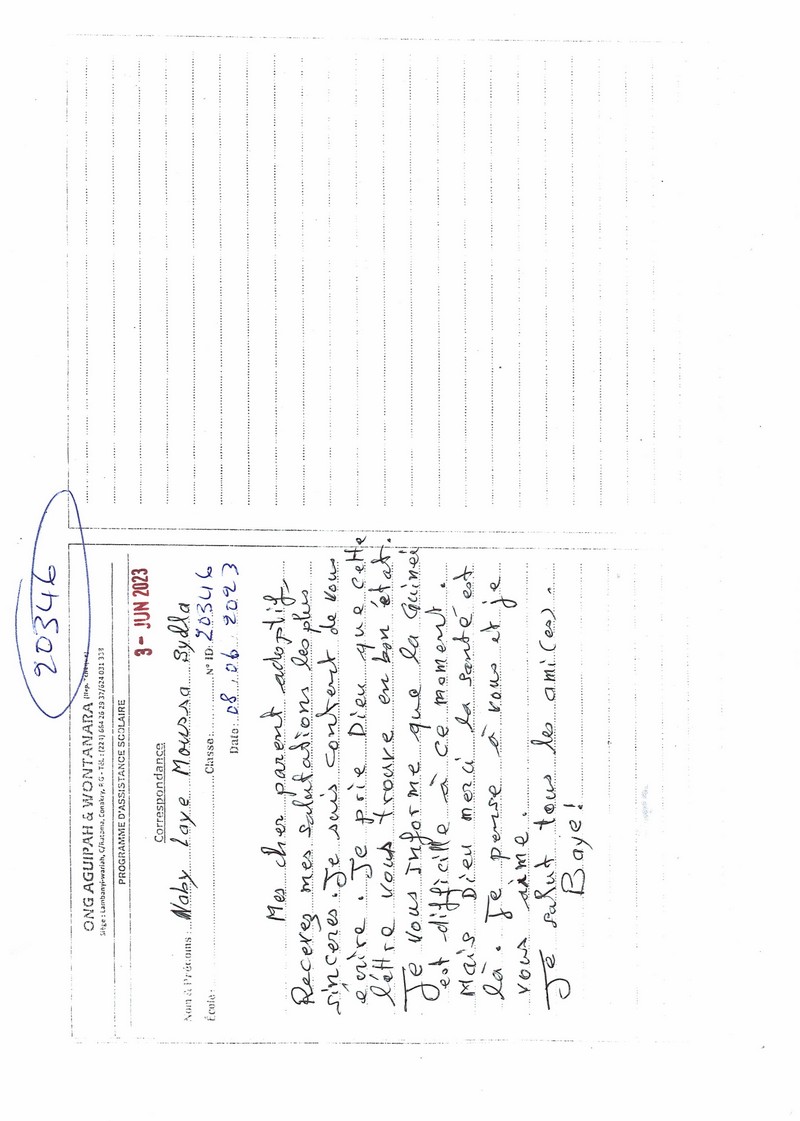 20346
ONG AGUIPAH & WONTANARA
Siège : Lambanyi-wariah, C/Ratoma, Conakry, RG - Tél. : (224) 664 26 29 37/624 031 338
PROGRAMME D'ASSISTANCE SCOLAIRE
3 - JUN 2023
Correspondance
Nom & Prénoms : Naby Laye Moussa Sylla
École : Classe : N° ID: 20346
Date : 08 06 2023
Mes cher parent adoptif
Recevez mes salutations les plus
sinceres. Je suis content de vous
écrire. Je prie Dieu que cette
lettre vous trouve en bon état.
Je vous informe que la Guinei
est difficille à ce moment.
Mais Dieu merci la santé est
là. Je pense à vous et je
vous aime.
Je salut tous les ami(es).
Baye!